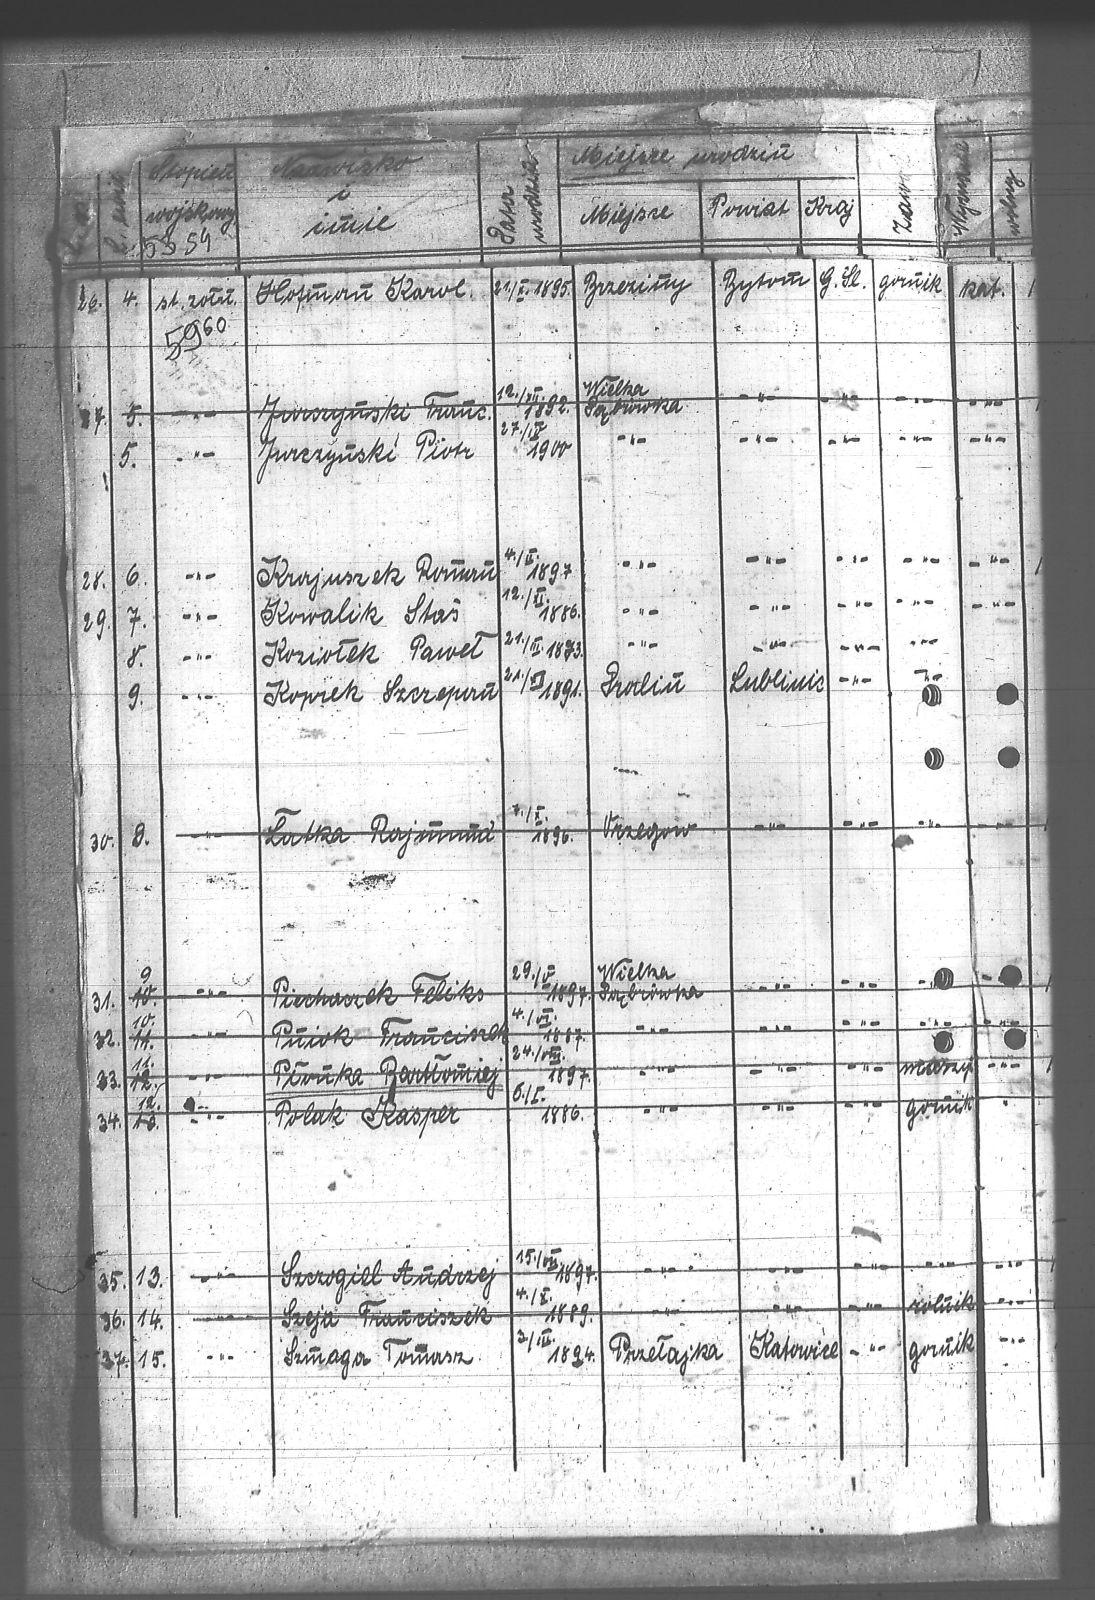 Stopień wojskowy
5354
Nazwisko i imie
Data urodzin
Miejsce urodzin
Miejsce Powiat Kraj
Wyznanie
wolny
26. 4. st. żołn. Hofman Karol. 1895. Brzeziny Bytom G. Śl. gornik kat. 1
5960
27. 5. -"- Jurszyński Franc. 12./XII. 1892. Wielka Dąbrówka -"- -"- -"- -"-
5. -"- Jurczyński Piotr 27./IV 1900 -"- -"- -"- -"- -"-
28. 6. -"- Krajuszek Roman 4./II. 1897 -"- -"- -"- -"- -"- 1
29. 7. -"- Kowalik Staś 12./XI. 1886. -"- -"- -"- -"- -"-
8. -"- Koziołek Paweł 21./III. 1873. -"- -"- -"- -"-
9. -"- Kopiek Szczepan 1891. Lublinic -"- -"-
30. 8. -"- Łatka Rajmund 1896. -"- -"- -"- -"- 1
31. 9 10. -"- Piechaczek Feliks 29./V 1897. Wielka Dąbrówka -"- -"-
32. 10. 11. Pniok Franciszek 4./VI. 1887. -"- -"- -"- -"-
33. 11. 12. -"- Płonka Bartłomiej 24./VIII. 1897. -"- -"- -"- -"- 1
34. 12. 13. -"- Polak Kasper 6./I. 1886. -"- -"- -"- gornik
35. 13. -"- Andrzej 15./VII 1897. -"- -"- -"- -"- -"- 1
36. 14. -"- Szeja Franciszek 4./X. 1889. -"- -"- -"- rolnik -"-
37. 15. -"- Szmaga Tomasz 1894. Przełajka Katowice -"- gornik -"-